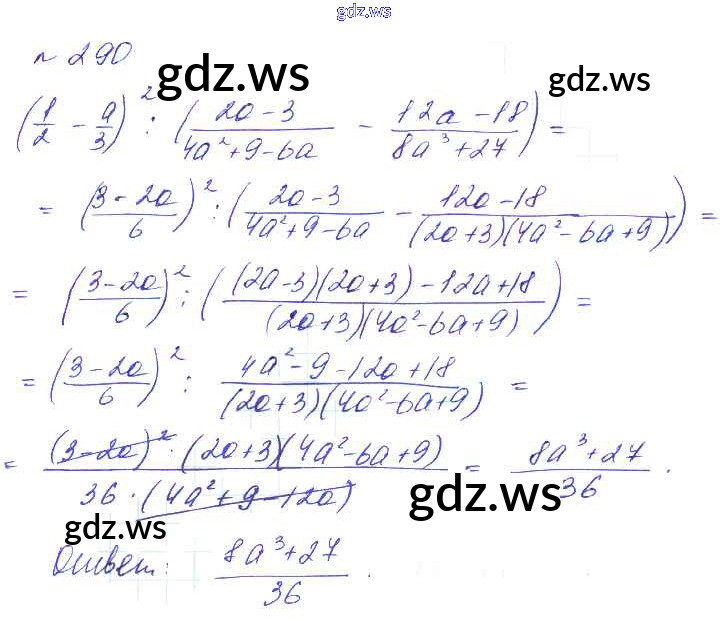 gdz.ws
№ 290
gdz.ws gdz.ws
(1/2 - a/3)² : ((2a-3)/(4a²+9-6a) - (12a-18)/(8a³+27)) =
= ((3-2a)/6)² : ((2a-3)/(4a²+9-6a) - (12a-18)/((2a+3)(4a²-6a+9))) =
= ((3-2a)/6)² : (((2a-3)(2a+3)-12a+18)/((2a+3)(4a²-6a+9))) =
= ((3-2a)/6)² : (4a²-9-12a+18)/((2a+3)(4a²-6a+9)) =
= ((3-2a)²·(2a+3)(4a²-6a+9))/(36·(4a²+9-12a)) = (8a³+27)/36.
gdz.ws gdz.ws
Ответ: (8a³+27)/36.